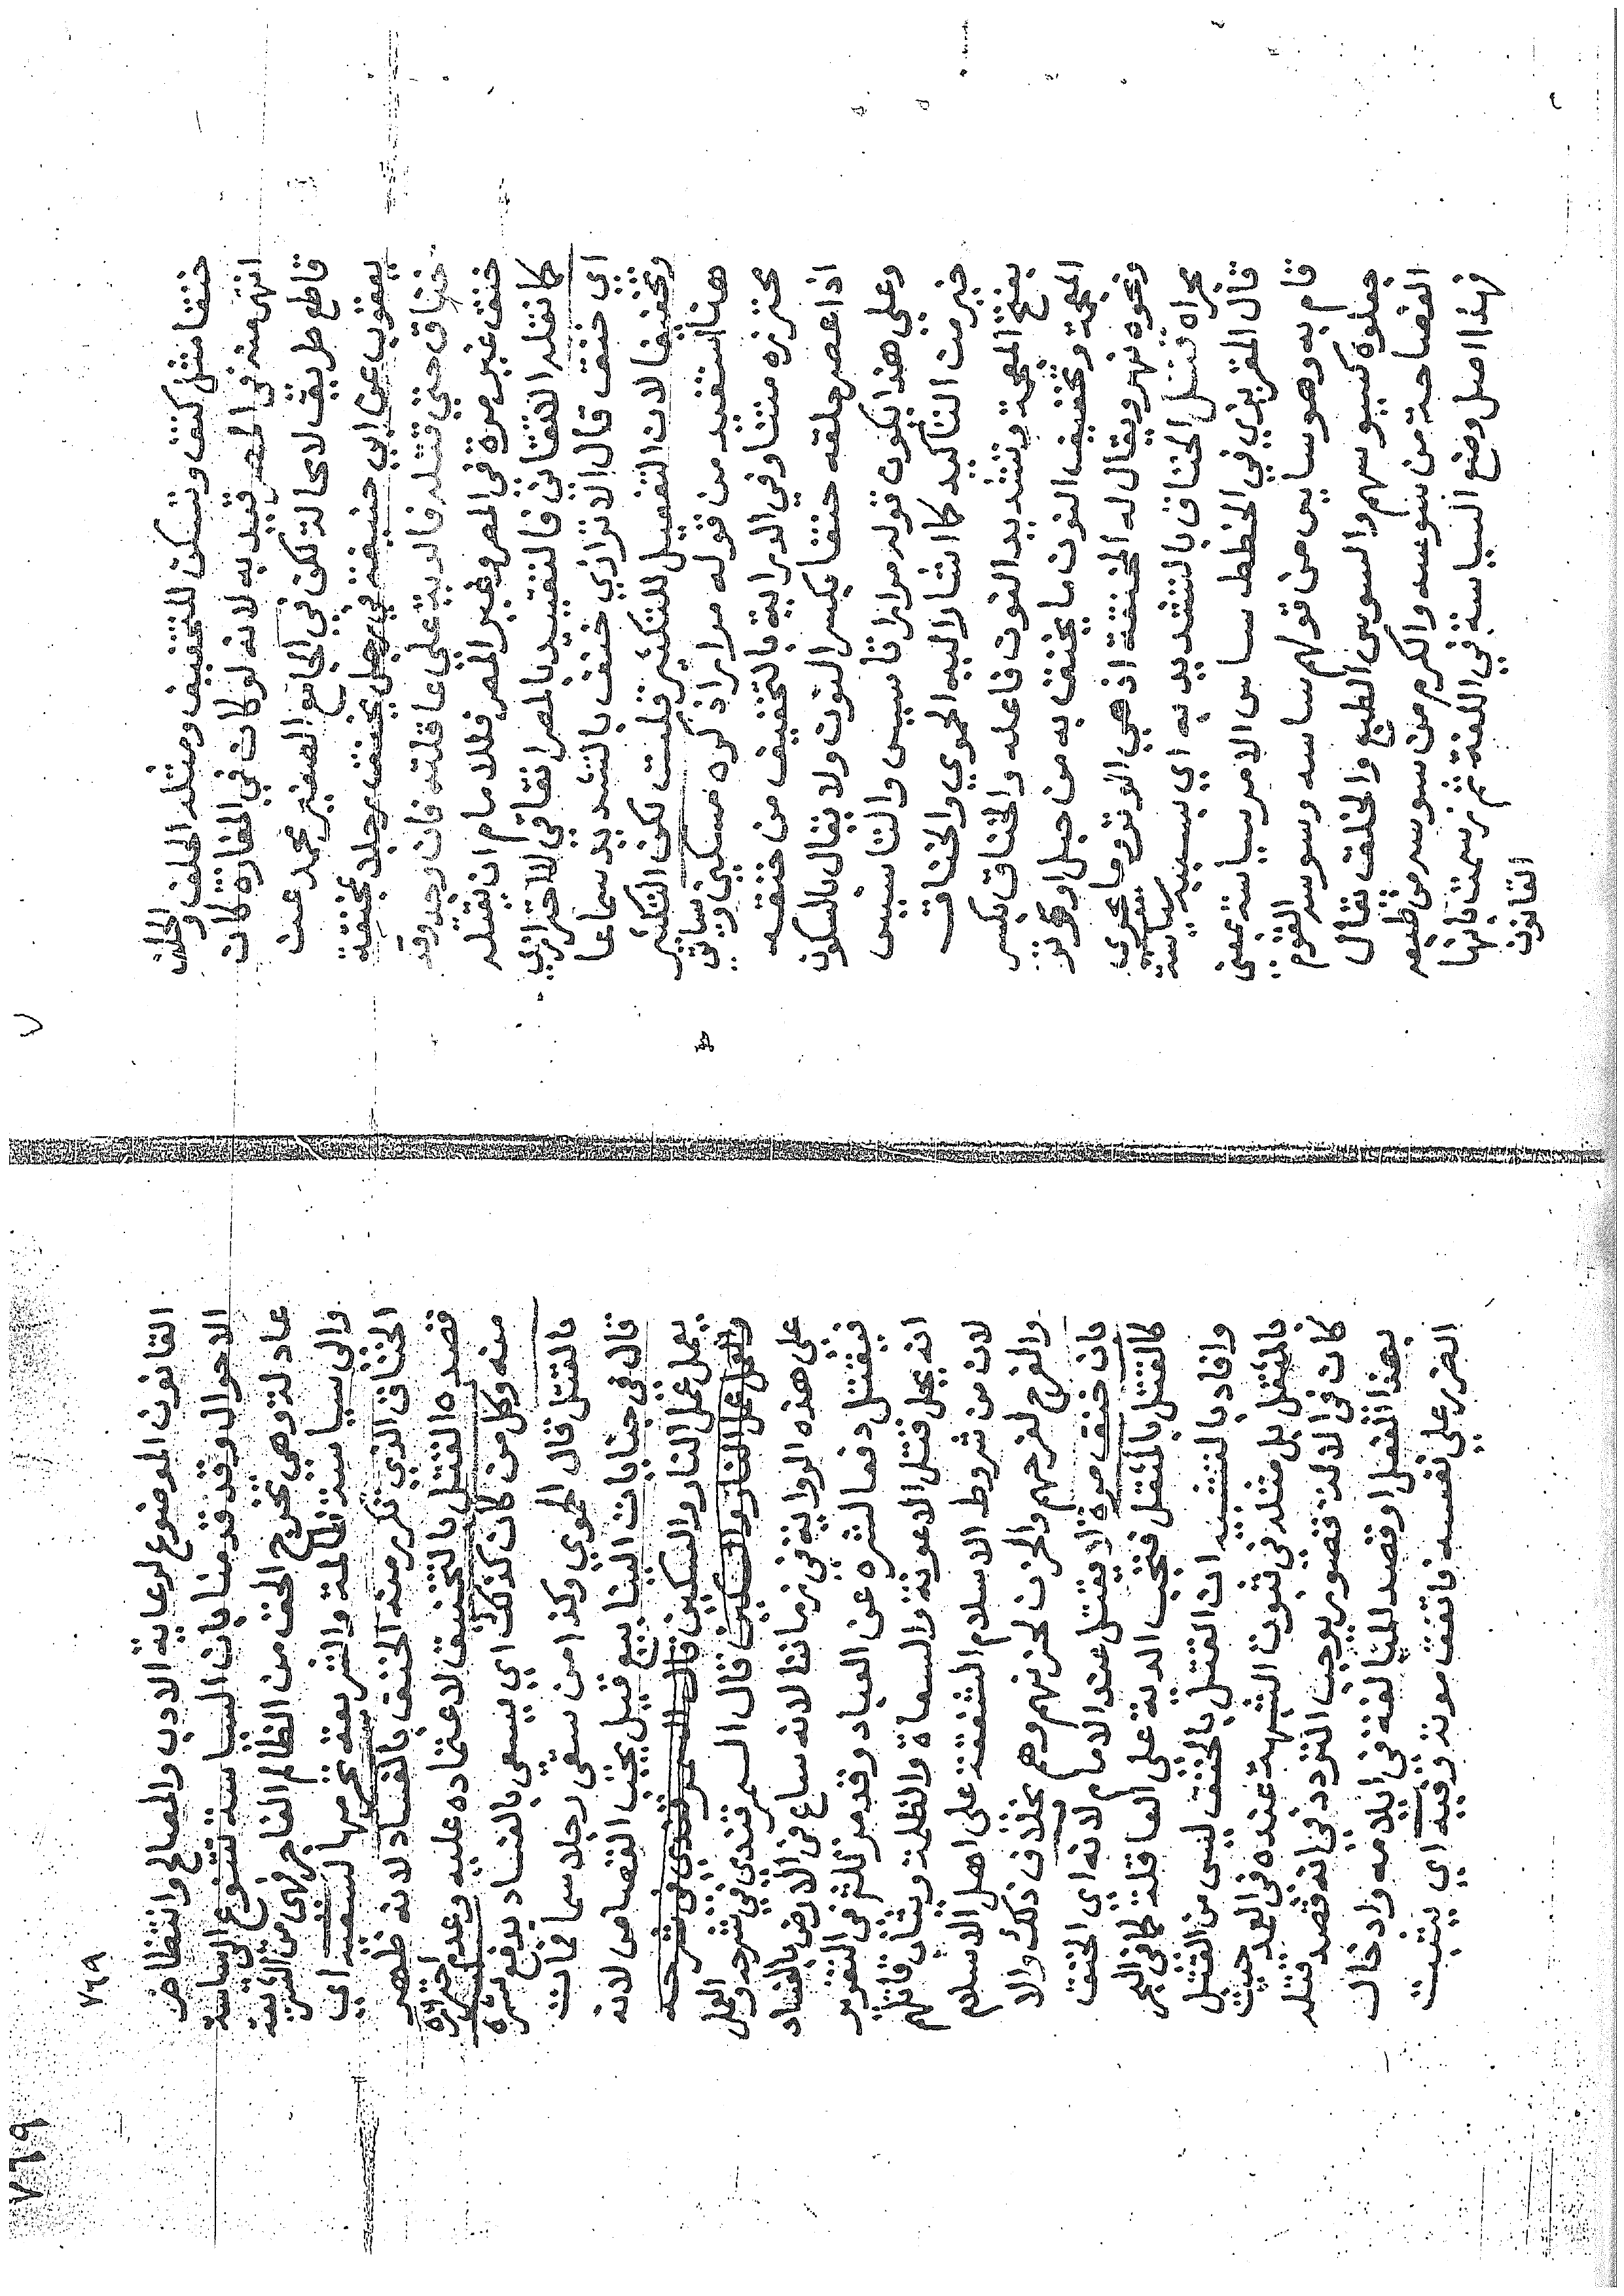 خنقا مثل كتف وتسكن للتخفيف ومثله الحلف والحلف
انتهى مشرق المصر قيد به لانه لو كان في المغازة كان
قاطع طريق لا محالة لكن في الجامع الصغير محمد عن
يعقوب عن ابي حنيفة في رجل يخنق رجلا بمخنقة
خناق حتى قتله فالدية على عاقلته فان وجد وقد
خنق غير مرة في المصر وغير المصر فللامام ان يقتله
كما نقله الاتقاني فالتقييد بالمصر اتفاقي لا احترازي
اي خنق قال الاترازي خنق بالتشديد سماعا
وتخفيفا لان التفعيل للتكثير قلت لكن التكثير
هنا استفيد من قوله مرارا ذكره مسكين وسياتي
محترزه متنا وفي الدراية بالتخفيف من خنقه
اذا عصر حلقه خنقا بكسر النون ولا يقال بالسكون
وعلى هذا يكون قوله مرارا تاسيس والتاسيس
خير من التاكيد كما اشار اليه الحموي والخناق
بفتح المعجمة وتشديد النون فاعله والخناق بكسر
المعجمة وتخفيف النون ما يخنق به من حبل او وتر
ونحوه نهر ويقال له المخنقة اذ هي الوتر وما يجري
مجراه قتل الخناق بالتشديد به اي بسببه سياسة
قال المقريزي في الخطط ساس الامر سياسة بمعنى
قام به وهو سايس من قوم ساسه وسوسه القوم
جعلوه يسوسهم والسوس الطبع والخلق يقال
الفصاحة من سوسه والكرم من سوسه من طبعه
فهذا اصل وضع السياسة في اللغة ثم رسمت بانها
القانون
٧٦٩
القانون الموضوع لرعاية الاداب والمصالح وانتظام
الاحوال وقد قدمنا بان السياسة تتنوع الى سياسة
عادلة وهي تخرج الحق من الظالم الفاجر فهي من الشريعة
والى سياسة ظالمة والشريعة تحرمها لسعيه اي
الخناق الذي تكرر منه الخنق بالفساد لانه ظهر
قصده القتل بالتخنيق لاعتماده عليه وعدم احترازه
منه وكل من كان كذلك اي يسعى بالفساد يدفع شره
بالقتل قال الحموي وكذا من سقى رجلا سما فمات
قال في جنايات الينابيع قيل يجب القصاص لانه
يعمل عمل النار والسكين قال السمرقندي في شرحه
والعمل عمل النار والسكين قال السمرقندي في شرحه والعمل
على هذه الرواية في زماننا لانه ساع في الارض بالفساد
فيقتل دفعا لشره عن العباد وقد مر نظيره في التعزير
انه يحل قتل الاعونة والسعاة والظلمة ويثاب قاتلهم
لان من شروط الاسلام الشفقة على اهل الاسلام
والفرح لفرحهم والحزن لحزنهم وهم بخلاف ذلك والا
بان خنق مرة لا يقتل عند الامام لانه اي الخنق
كالقتل بالمثقل فتجب الدية على العاقلة كما في البحر
وافاد بالتشبيه ان القتل بالخنق ليس من القتل
بالمثقل بل مثله في ثبوت الشبهة عنده في العمدية حيث
كان في الالة قصور يوجب التردد في انه قصد قتله
بهذا الفعل او قصد المبالغة في ايلامه وادخال
الضرر على نفسه فاتفق موته وفيه اي يثبت